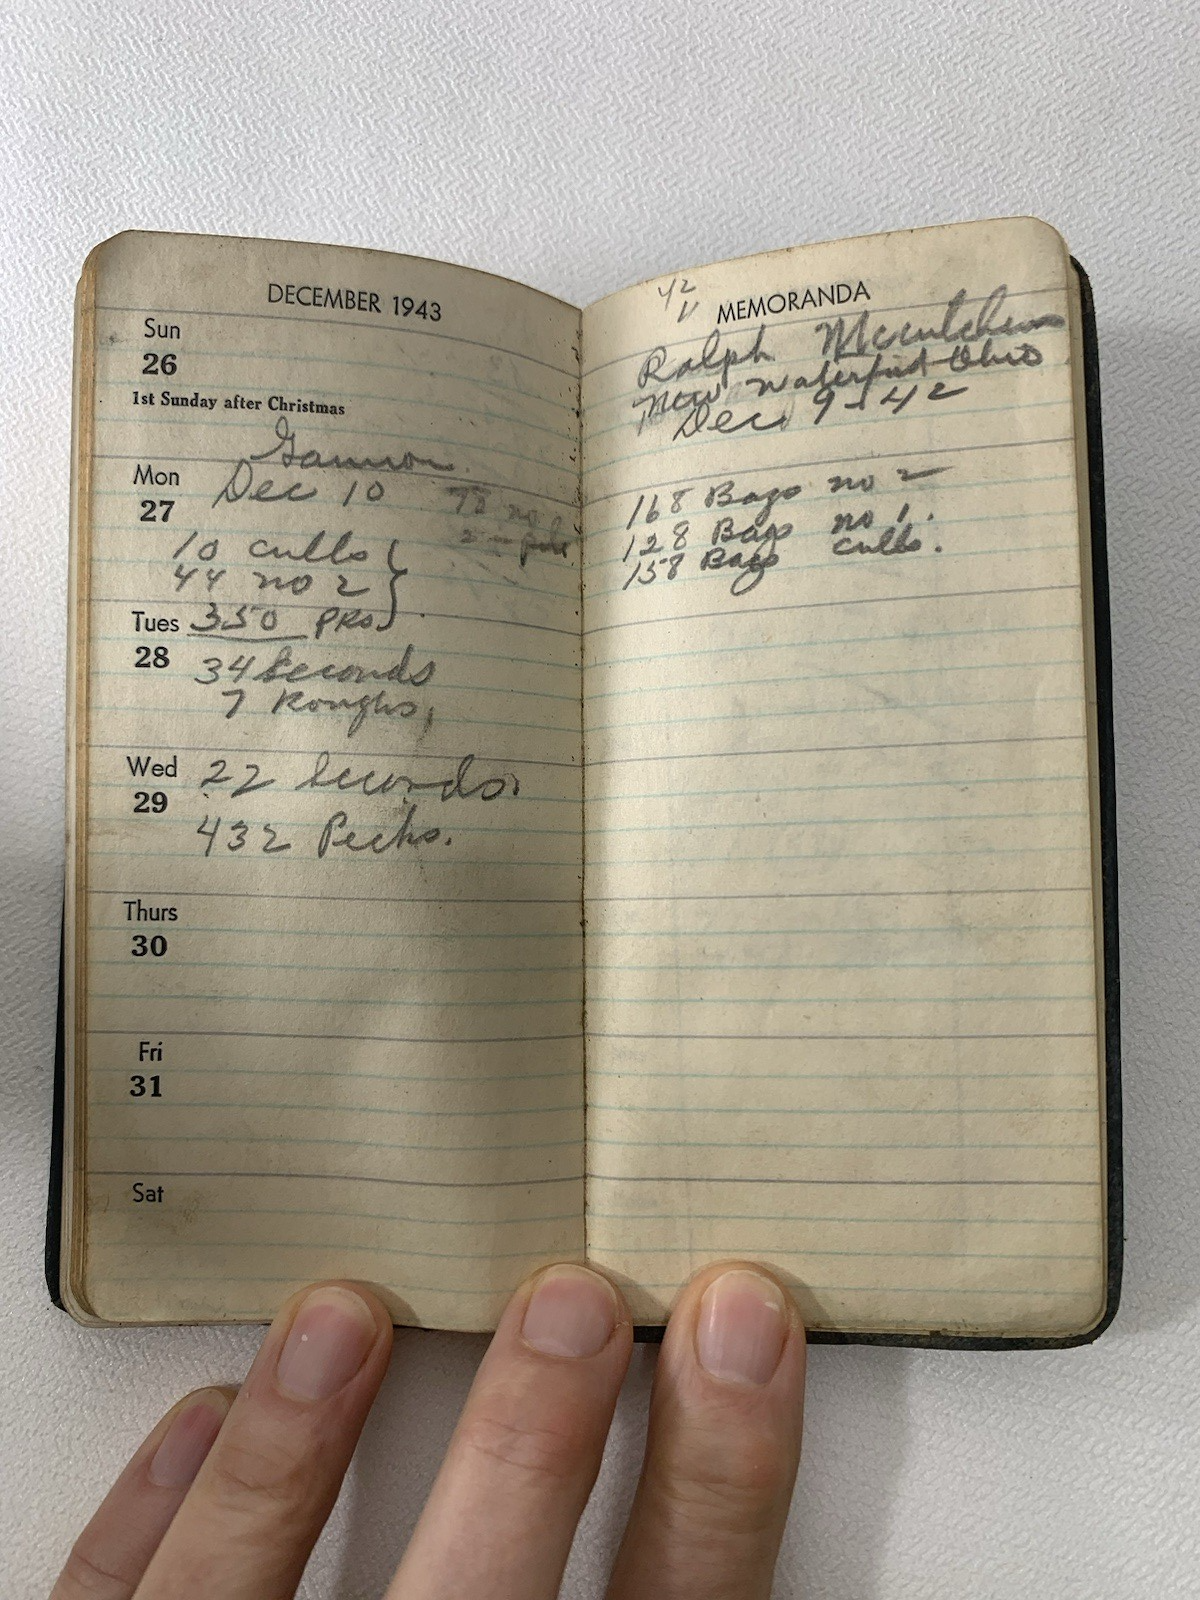 DECEMBER 1943
Sun
26
1st Sunday after Christmas
Gannon.
Mon
27
Dec 10
78 no
2
10 culls
44 no 2
Tues
28
350 pks
34 Seconds
7 Roughs,
Wed
29
22 Seconds.
432 Pecks.
Thurs
30
Fri
31
Sat
42
11
MEMORANDA
Ralph McCutcheon
New Waterford Ohio
Dec 9 - 42
168 Bags no 2
128 Bags no 1.
158 Bags culls.